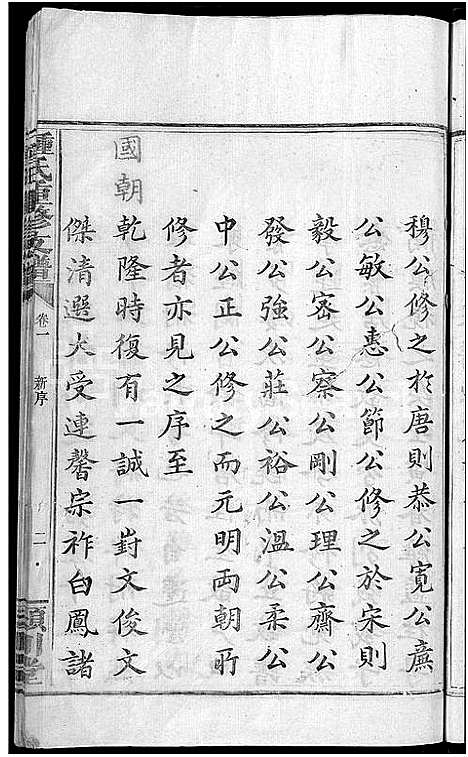 穆公修之於唐則恭公寬公廉
公敏公惠公節公修之於宋則
毅公密公察公剛公理公齋公
發公強公莊公裕公溫公柔公
中公正公修之而元明両朝所
修者亦見之序至
國朝乾隆時復有一誠一崶文俊文
傑清選大受連馨宗祚白鳳諸
鍾氏重修支譜
卷一
新序
二
潁川堂